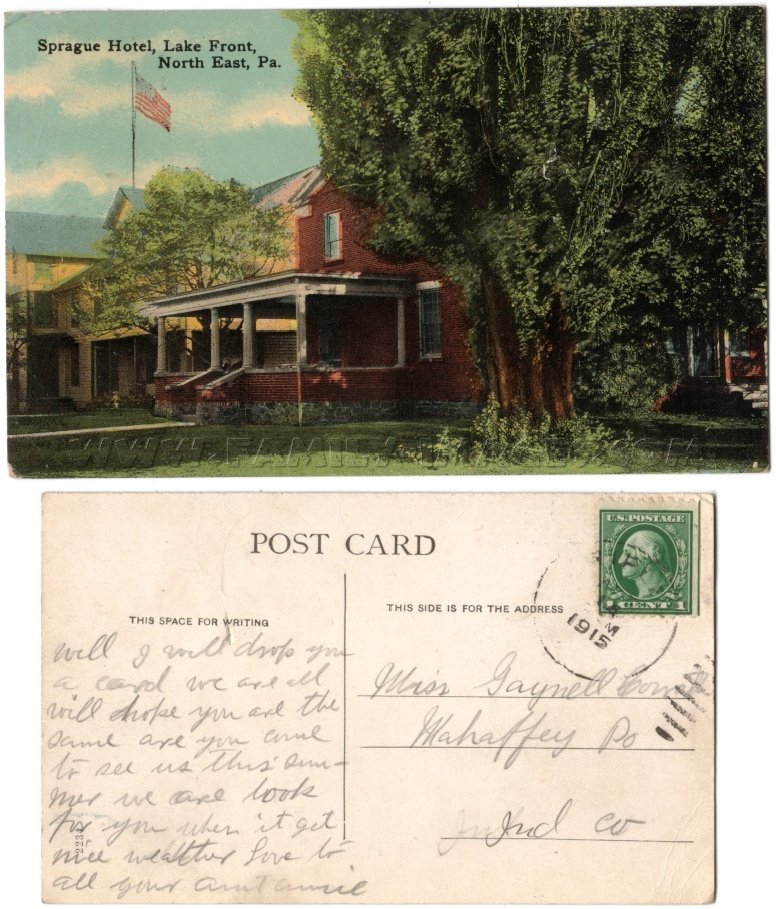 Sprague Hotel, Lake Front,
North East, Pa.
WWW.FAMILY-IMAGES.COM
POST CARD
THIS SPACE FOR WRITING
THIS SIDE IS FOR THE ADDRESS
U.S. POSTAGE
1 CENT 1
M
1915
will I will drop you
a card we are all
will hope you are the
same are you come
to see us this sum-
mer we are look
for you when it get
nice weather Love to
all your aunt annie
Miss Gaynell
Mahaffey Po
Ind Co